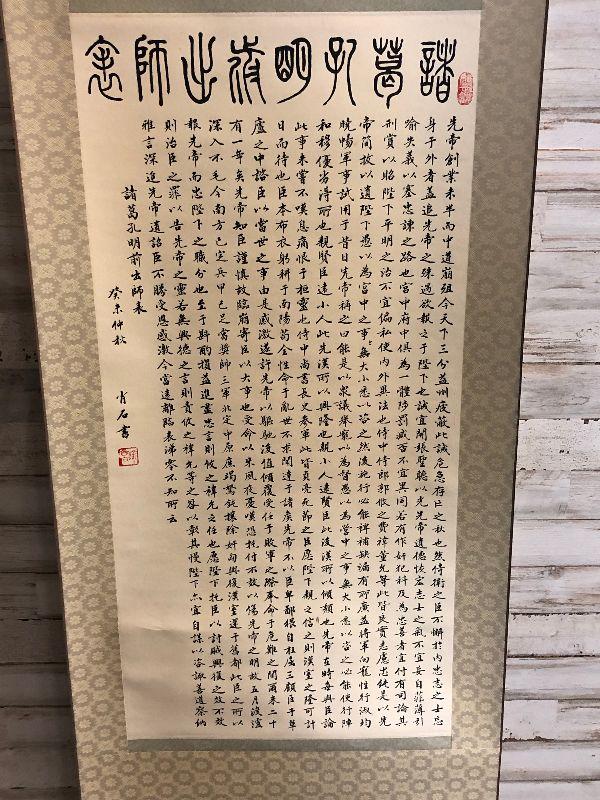 諸葛孔明前出師表
先帝創業未半而中道崩殂今天下三分益州疲敝此誠危急存亡之秋也然侍衛之臣不懈於內忠志之士忘
身于外者蓋追先帝之殊遇欲報之于陛下也誠宜開張聖聽以光先帝遺德恢宏志士之氣不宜妄自菲薄引
喻失義以塞忠諫之路也宮中府中俱為一體陟罰臧否不宜異同若有作奸犯科及為忠善者宜付有司論其
刑賞以昭陛下平明之治不宜偏私使內外異法也侍中侍郎郭攸之費禕董允等此皆良實志慮忠純是以先
帝簡拔以遺陛下愚以為宮中之事無大小悉以咨之然後施行必能裨補缺漏有所廣益將軍向寵性行淑均
曉暢軍事試用于昔日先帝稱之曰能是以眾議舉寵以為督愚以為營中之事無大小悉以咨之必能使行陣
和穆優劣得所也親賢臣遠小人此先漢所以興隆也親小人遠賢臣此後漢所以傾頹也先帝在時每與臣論
此事未嘗不嘆息痛恨于桓靈也侍中尚書長史參軍此皆貞亮死節之臣愿陛下親之信之則漢室之隆可計
日而待也臣本布衣躬耕于南陽苟全性命于亂世不求聞達于諸侯先帝不以臣卑鄙猥自枉屈三顧臣于草
廬之中諮臣以當世之事由是感激遂許先帝以驅馳後值傾覆受任于敗軍之際奉命于危難之間爾來二十
有一年矣先帝知臣謹慎故臨崩寄臣以大事也受命以來夙夜憂嘆恐托付不效以傷先帝之明故五月渡瀘
深入不毛今南方已定兵甲已足當獎師三軍北定中原庶竭駑鈍攘除奸凶興復漢室還于舊都此臣之所以
報先帝而忠陛下之職分也至于斟酌損益進盡忠言則攸之禕允之任也愿陛下托臣以討賊興復之效不效
則治臣之罪以告先帝之靈若無興德之言則責攸之禕允等之咎以彰其慢陛下亦宜自謀以咨諏善道察納
雅言深追先帝遺詔臣不勝受恩感激今當遠離臨表涕零不知所云
諸葛孔明前出師表
癸未仲秋
青石書